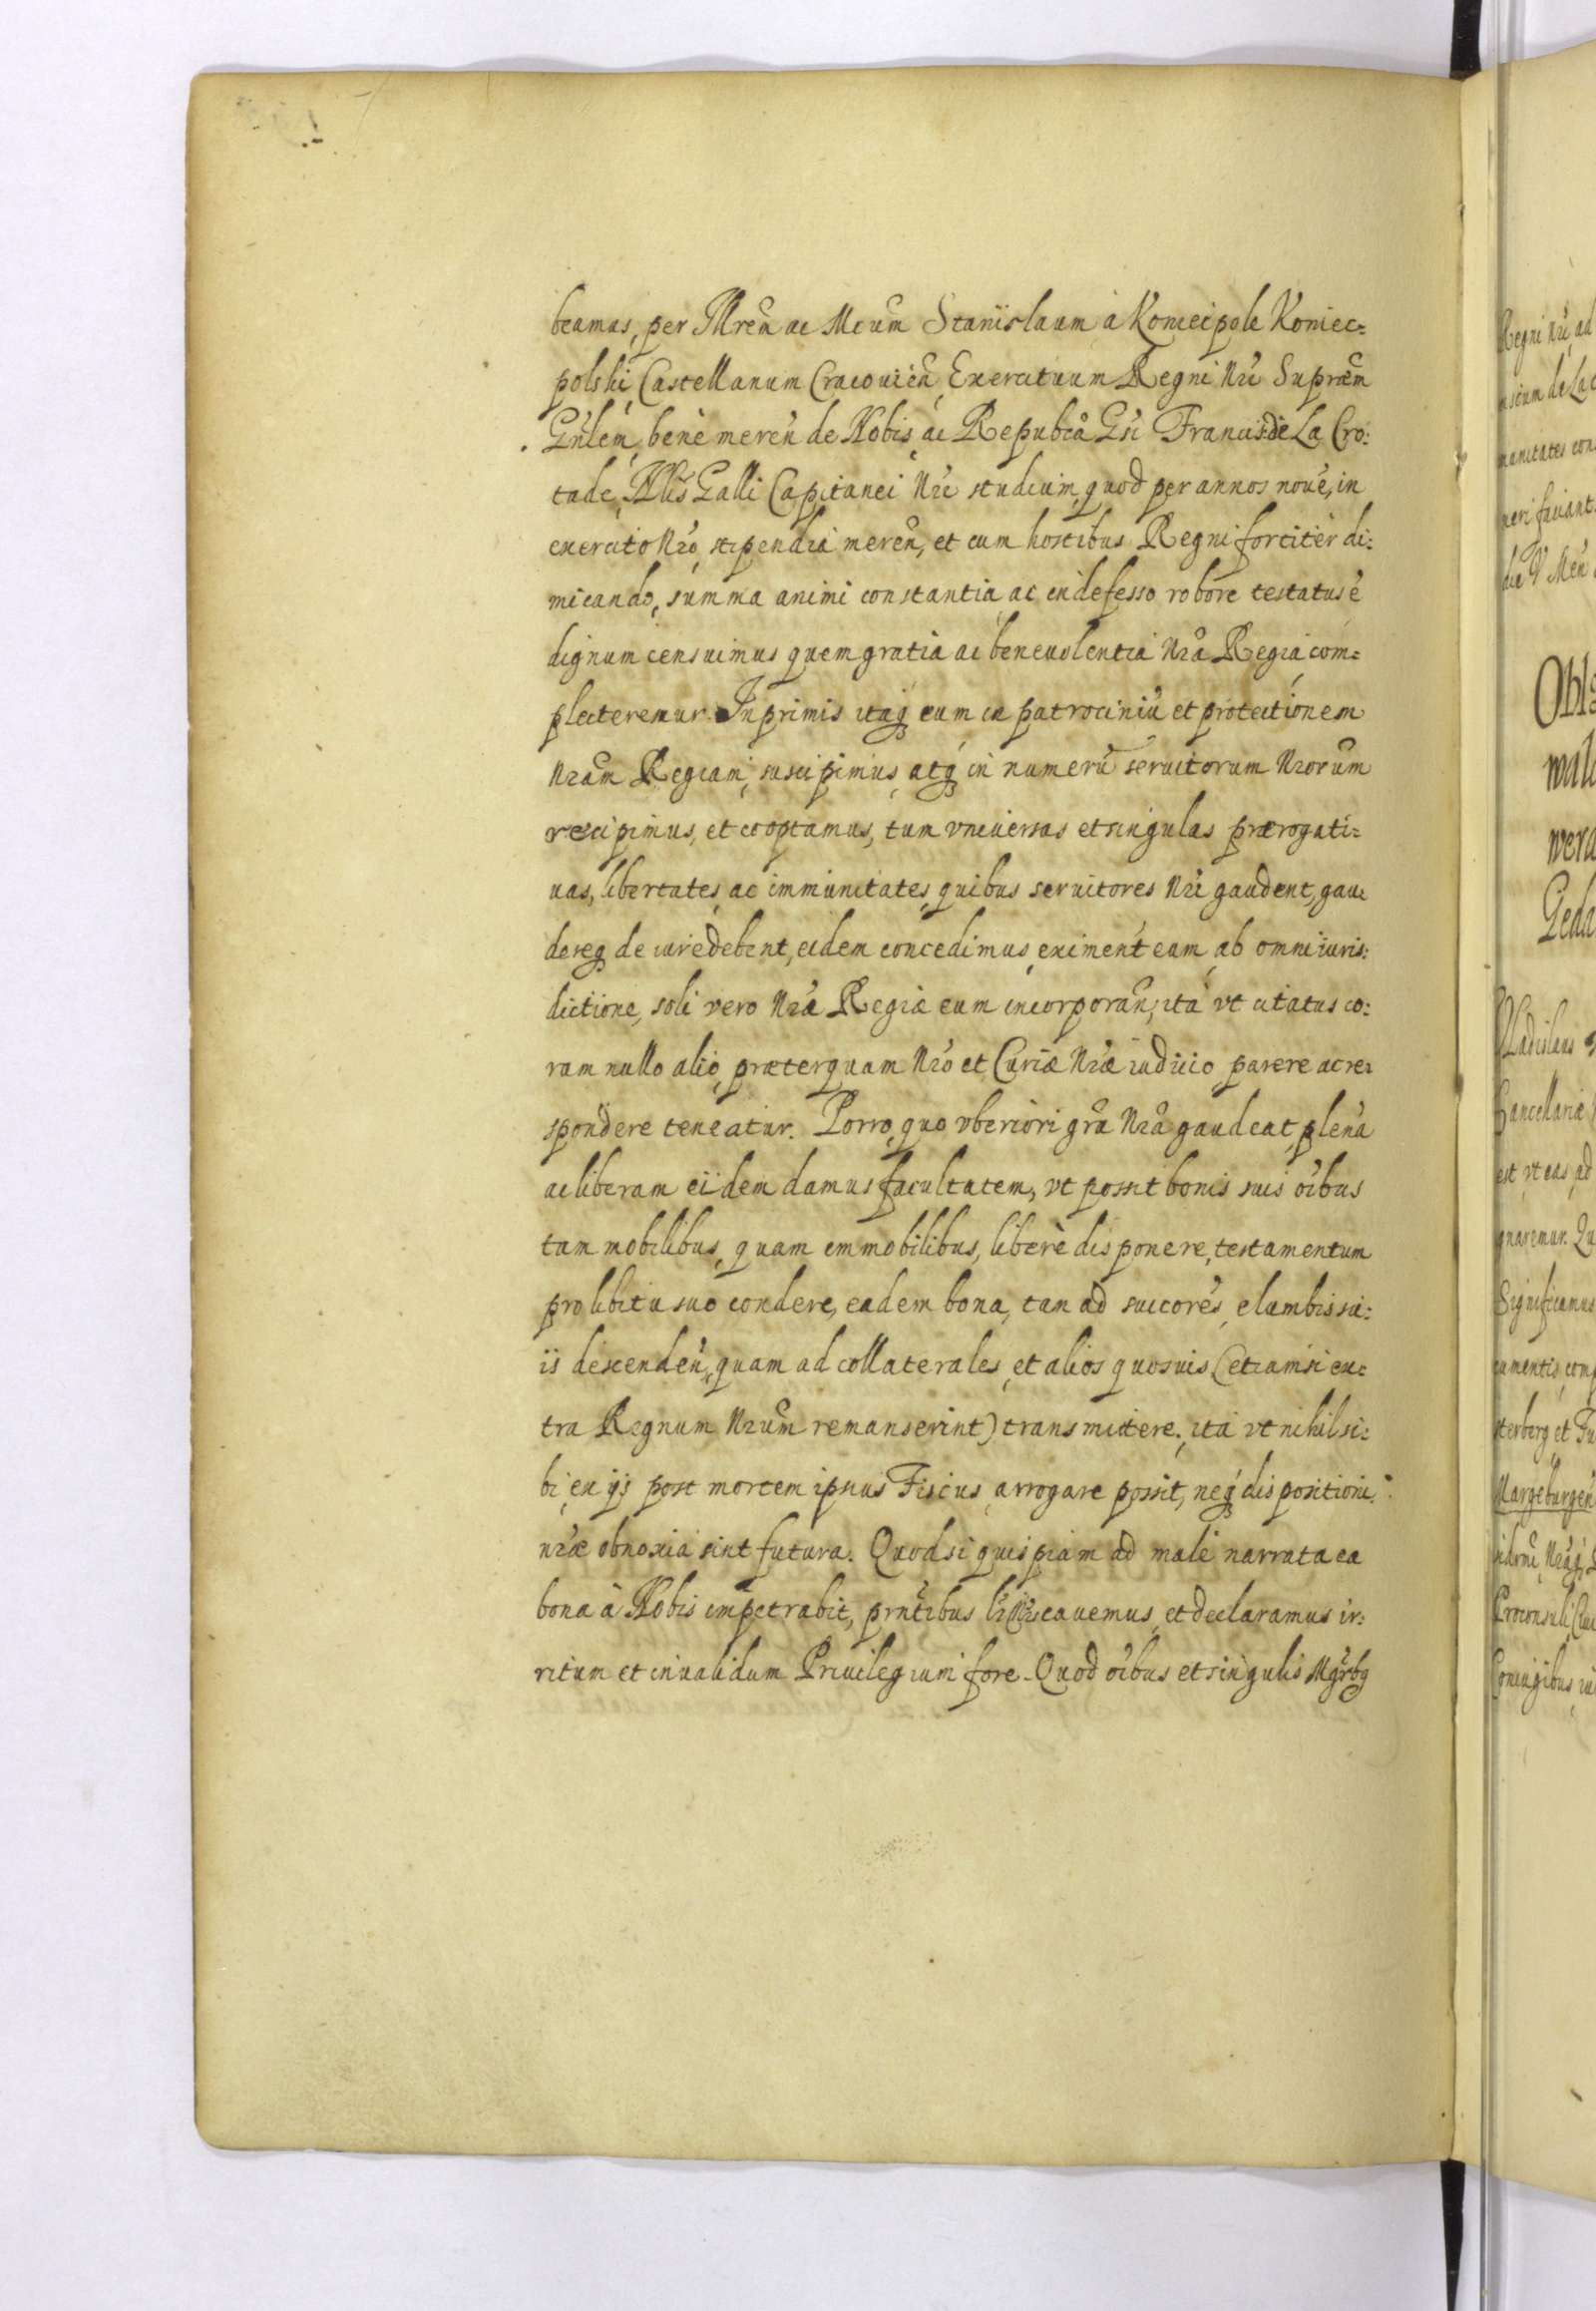 beamas, per Illrem ac Mcum Stanislaum à Koniecpole Koniec=
polski, Castellanum Cracouien, Exercituum Regni Nri Supræm
Gnlem, bene meren de Nobis, ac Repubca Gsi Francis. de La Cro:
tade, Nblis Galli Capitanei Nri studium, quod per annos noue, in
exercito Nro, stipendia meren, et cum hostibus Regni fortiter di:
micando, summa animi constantia, ac indefesso robore testatus e
dignum censuimus quem gratia ac beneuolentia Nra Regia, com=
plecteremur. Inprimis itaq eum in patrociniu et protectionem
Nram Regiam, suscipimus, atq in numeru seruitorum Nrorum
recipimus, et cooptamus, tum vniuersas et singulas prærogati=
uas, libertates, ac immunitates, quibus seruitores Nri gaudent, gau:
dereq de iure debent, eidem concedimus, eximent eum, ab omni iuris:
dictione, soli vero Nræ Regiæ eum incorporan, ita vt citatus co:
ram nullo alio, præterquam Nro et Curiæ Nræ iudicio parere ac re:
spondere teneatur. Porro, quo vberiori gra Nra gaudeat, plena
ac liberam eidem damus facultatem, vt possit bonis suis oibus
tam mobilibus, quam immobilibus, liberè disponere, testamentum
pro libitu suo condere, eadem bona, tam ad succores, e lumbis su:
is descenden, quam ad collaterales, et alios quosuis (etiamsi ex:
tra Regnum Nrum remanserint) transmittere, ita vt nihil si:
bi, ex ijs post mortem ipsius Fiscus, arrogare possit, neq dispositioni
nræ obnoxia sint futura. Quod si quispiam ad male narrata ea
bona à Nobis impetrabit, prntibus lris cauemus, et declaramus ir:
ritum et inualidum Priuilegium fore. Quod oibus et singulis Mgrbg
Regni Nri, ad
manitates con
Vladislaus
Cancellariæ
est, vt eas, ad
gnaremur. Qu
Significamus
cumentis, comp
sterberg, et Fu
Margeburgen
Proconsuli, Ciui
Coniugibus, iu